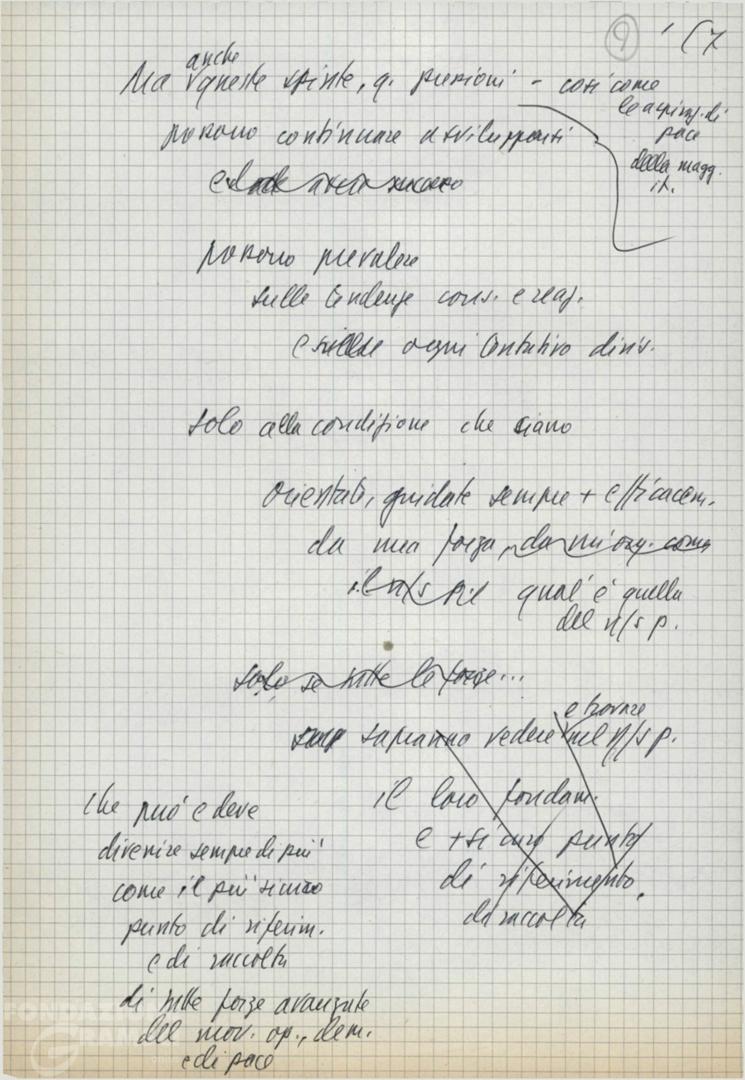 9 157
anche
Ma queste spinte, q. pressioni - così come
le aspiraz. di
pace
della magg.
it.
possono continuare a svilupparsi
e avere successo
possono prevalere
sulle tendenze cons. e reaz.
e ogni tentativo divis.
solo alla condizione che siano
orientate, guidate sempre + efficacem.
da una forza, da un'org. come
il n/s qual'è quella
del n/s p.
solo se tutte le forze...
e trovare
sapranno vedere nel n/s p.
il loro fondam.
e + sicuro punto
di riferimento,
di raccolta
che può e deve
divenire sempre di più
come il più sicuro
punto di riferim.
e di raccolta
di tutte forze avanzate
del mov. op., dem.
e di pace
FONDAZIONE
GRAMSCI